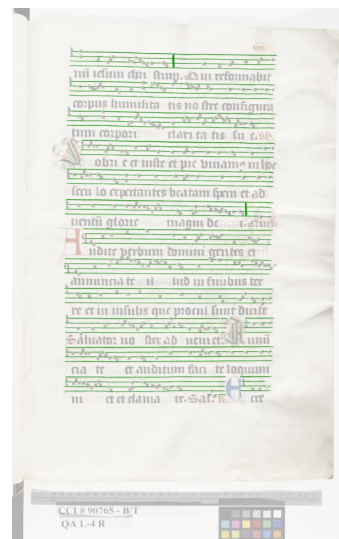 iiij
num iesum chri stum. Qui reformabit
corpus humilita tis no stre configura
tum corpori clari ta tis su e.
obri e et iuste et pie viuamus in hoc
seculo expectantes beatam spem et ad
uentum glorie magni de i.
Audite verbum domini gentes et
annuncia te il lud in finibus ter
re et in insulis que procul sunt dicite
Saluator no ster ad ueniet. Annu
cia te et auditum faci te loquimi
ni et clama te. Sal. Ecce
CCI # 90765 - B/T
QA L-4 R